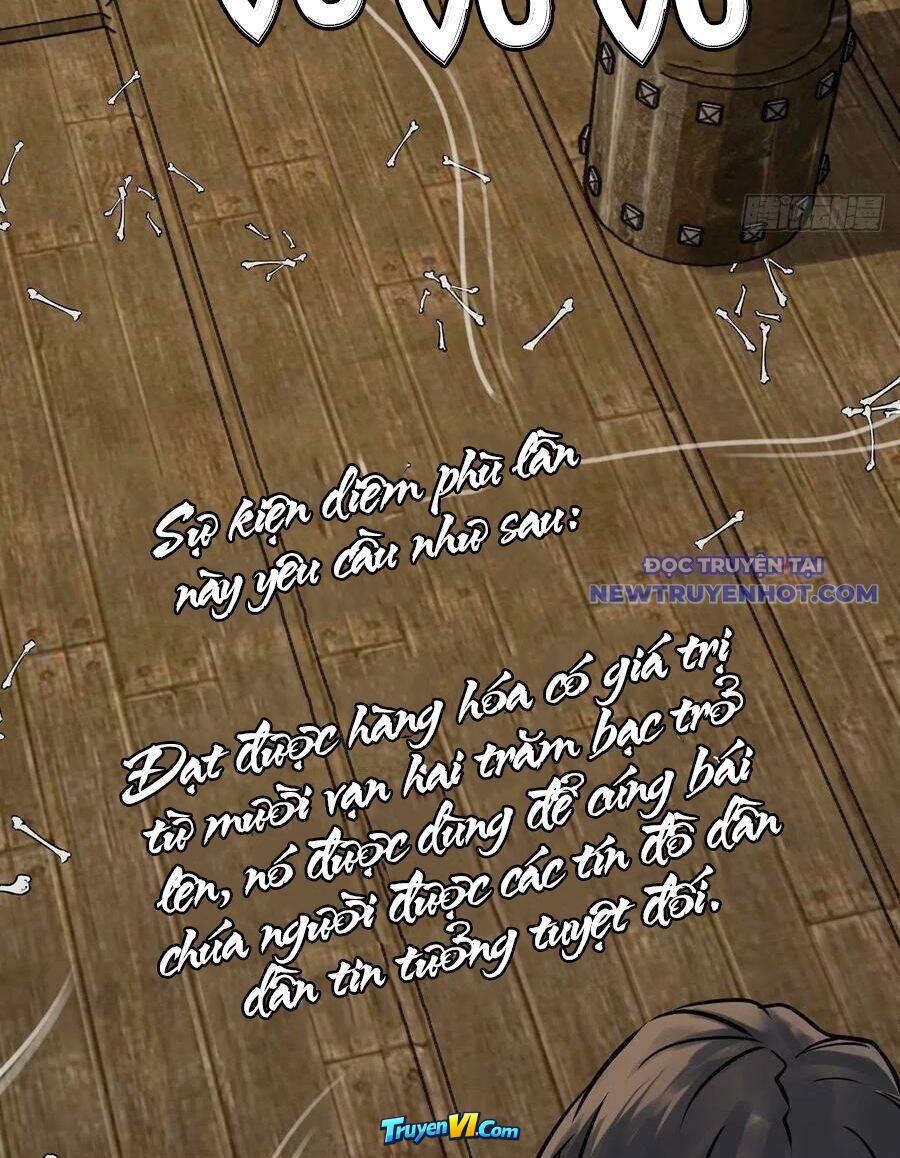 VÙ VÙ VÙ
腾讯动漫
Sự kiện diêm phù lần
này yêu cầu như sau:
ĐỌC TRUYỆN TẠI
NEWTRUYENHOT.COM
Đạt được hàng hóa có giá trị
từ mười vạn hai trăm bạc trở
lên, nó được dùng để cúng bái
chúa người được các tín đồ dần
dần tin tưởng tuyệt đối.
TruyenVI.Com